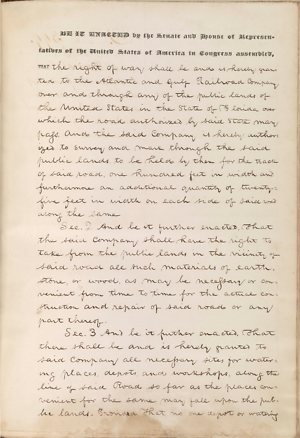 BE IT ENACTED by the Senate and House of Represen-
tatives of the United States of America in Congress assembled,
THAT the right of way shall be and is hereby gran-
ted to the Atlantic and Gulf Railroad Company
over and through any of the public lands of
the United States in the State of Florida, over
which the road authorized by said State may
pass And the said Company is hereby author-
ized to survey and mark through the said
public lands to be held by them for the track
of said road, one hundred feet in width and
furthermore an additional quantity of twenty-
five feet in width on each side of said road
along the same.
Sec. 2 And be it further enacted, That
the said Company shall have the right to
take from the public lands in the vicinity of
said road all such materials of earth,
stone, or wood, as may be necessary or con-
venient from time to time for the actual con-
struction and repair of said road or any
part thereof.
Sec. 3. And be it further enacted, That
there shall be and is hereby granted to
said Company all necessary sites for water-
ing places, depots and workshops, along the
line of said Road so far as the places con-
venient for the same may fall upon the pub-
lic lands. Provided That no one depot or watering